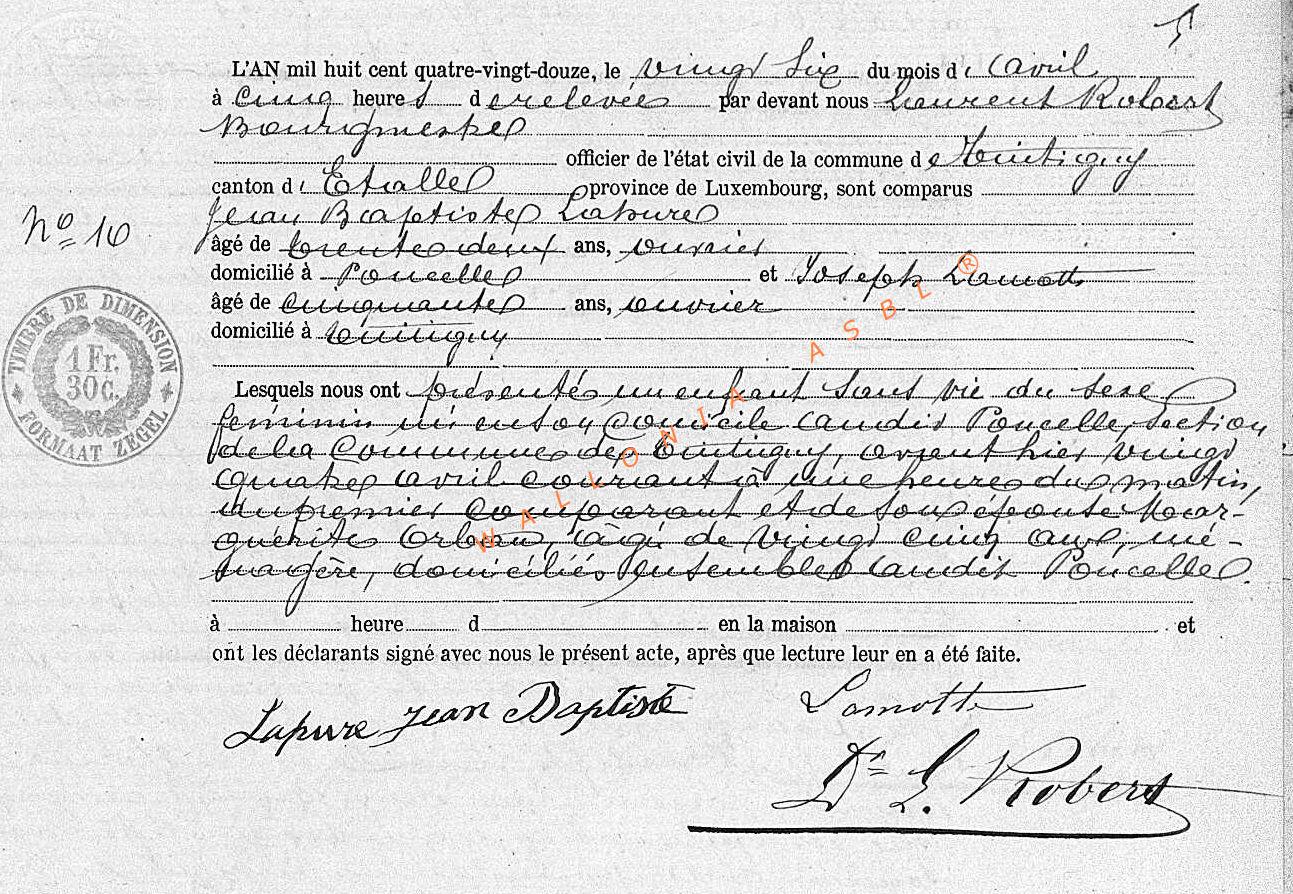 L'AN mil huit cent quatre-vingt-douze, le vingt six du mois d'avril
à cinq heures de relevée par devant nous Laurent Robert
Bourgmestre
officier de l'état civil de la commune de Tintigny
canton d'Etalle province de Luxembourg, sont comparus
Jean Baptiste Lapure
âgé de trente deux ans, ouvrier
domicilié à Poncelle et Joseph Lamotte
âgé de cinquante ans, ouvrier
domicilié à Tintigny
Lesquels nous ont présenté un enfant sans vie du sexe
féminin né en son domicile audit Poncelle, section
de la Commune de Tintigny, avant hier vingt
quatre avril courant à une heure du matin,
du premier comparant et de son épouse Mar-
guérite Orban, âgée de vingt cinq ans, mé-
nagère, domiciliés ensemble audit Poncelle.
à heure d en la maison et
ont les déclarants signé avec nous le présent acte, après que lecture leur en a été faite.
Lapure Jean Baptiste
Lamotte
Dr L. Robert
No 16
TIMBRE DE DIMENSION
1 Fr.
30c.
FORMAAT ZEGEL
WALLONIA ASBL ®